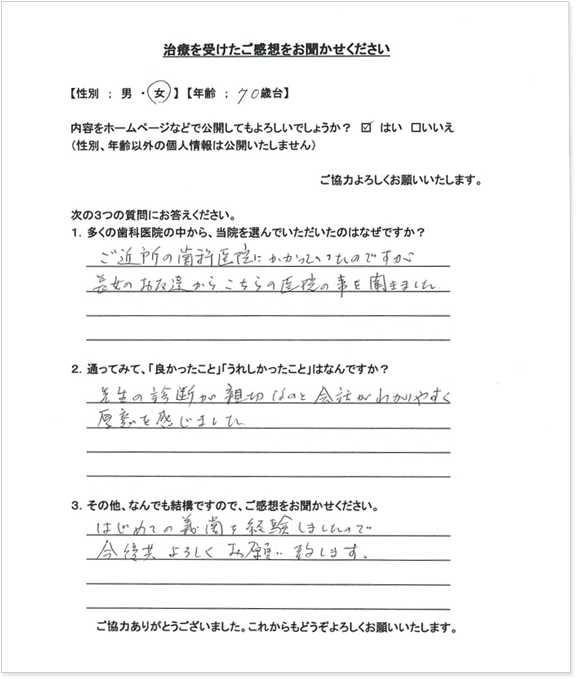 治療を受けたご感想をお聞かせください
【性別 ; 男 ・ 女】【年齢 ; 70歳台】
内容をホームページなどで公開してもよろしいでしょうか? ☑ はい □いいえ
(性別、年齢以外の個人情報は公開いたしません)
ご協力よろしくお願いいたします。
次の3つの質問にお答えください。
1. 多くの歯科医院の中から、当院を選んでいただいたのはなぜですか?
ご近所の歯科医院にかかっていたのですが
長女のお友達からこちらの医院の事を聞きました
2. 通ってみて、「良かったこと」「うれしかったこと」はなんですか?
先生の診断が親切なのと会話がわかりやすく
厚意を感じました
3. その他、なんでも結構ですので、ご感想をお聞かせください。
はじめての義歯を経験しましたので
今後共よろしくお願い致します。
ご協力ありがとうございました。これからもどうぞよろしくお願いいたします。